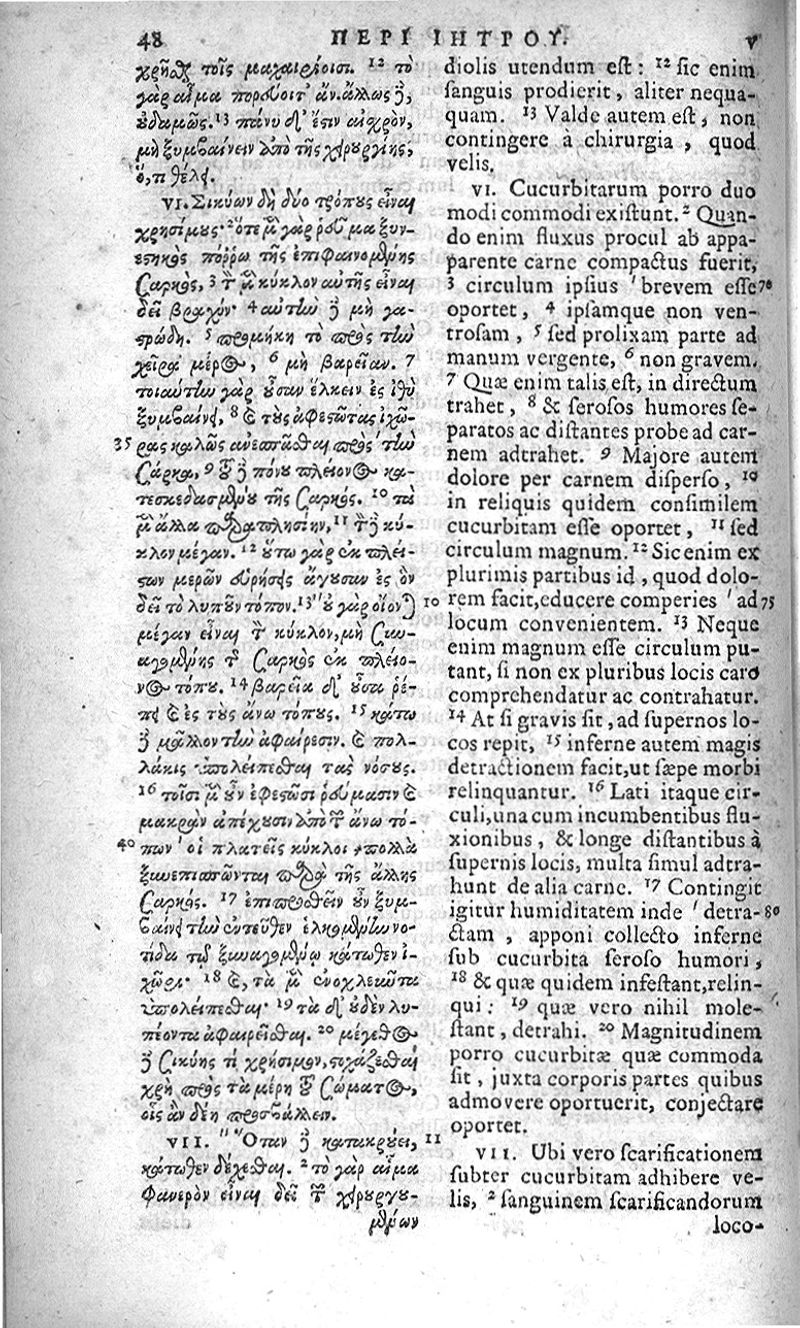 48 ΠΕΡΙ ΙΗΤΡΟΥ. v
χρῆσθαι τοῖς μαχαιρίοισι. 12 τὸ
γὰρ αἷμα πορεύοιτ' ἄν. ἄλλως δὲ,
οὐδαμῶς. 13 πάνυ δ' ἐστὶν αἰσχρὸν,
μὴ ξυμβαίνειν ἀπὸ τῆς χειρουργίης,
ὅ, τι θέλει.
VI. Σικύων δὴ δύο τρόπους εἶναι
χρησίμους· 2 ὅτε μὲν γὰρ ῥεῦμα ξυν-
εστηκὸς πόῤῥω τῆς ἐπιφαινομένης
σαρκὸς, 3 τὸν μὲν κύκλον αὐτῆς εἶναι
δεῖ βραχύν· 4 αὐτὴν δὲ μὴ γα-
στρώδη. 5 προμήκη τὸ πρὸς τὴν
χεῖρα μέρος, 6 μὴ βαρεῖαν. 7
τοιαύτην γὰρ οὖσαν ἕλκειν ἐς ἰθὺ
ξυμβαίνει, 8 καὶ τοὺς ἀφεστῶτας ἰχῶ-
35 ρας καλῶς ἀνεσπᾶσθαι πρὸς τὴν
σάρκα, 9 τοῦ δὲ πόνου πλείονος κα-
τεσκεδασμένου τῆς σαρκός. 10 τὰ
μὲν ἄλλα παραπλησίην, 11 τὸν δὲ κύ-
κλον μέγαν. 12 οὕτω γὰρ ἐκ πλεί-
στων μερῶν εὑρήσεις ἄγουσαν ἐς ὃν
δεῖ τὸ λυποῦν τόπον. 13 " οὐ γὰρ οἷόν τε 10
μέγαν εἶναι τὸν κύκλον, μὴ συν-
αγομένης τῆς σαρκὸς ἐκ πλείο-
νος τόπου. 14 βαρεῖα δ' οὖσα ῥέ-
πει καὶ ἐς τοὺς ἄνω τόπους. 15 κάτω
δὲ μᾶλλον τὴν ἀφαίρεσιν. καὶ πολ-
λάκις ὑπολείπεσθαι τὰς νόσους.
16 τοῖσι μὲν οὖν ἐφεστῶσι ῥεύμασιν καὶ
μακρὰν ἀπέχουσιν ἀπὸ τῶν ἄνω τό-
40 πων ' οἱ πλατεῖς κύκλοι πολλὰ
ξυνεπισπῶνται παρὰ τῆς ἄλλης
σαρκός. 17 ἐπιπροσθεῖν οὖν ξυμ-
βαίνει τὴν ἐντεῦθεν ἑλκομένην νο-
τίδα τῷ ξυναγομένῳ κάτωθεν ἰ-
χῶρι· 18 καὶ, τὰ μὲν ἐνοχλεῦντα
ὑπολείπεσθαι· 19 τὰ δ' οὐδὲν λυ-
πέοντα ἀφαιρεῖσθαι. 20 μέγεθος
δὲ σικύης τί χρήσιμον, στοχάζεσθαι
χρὴ πρὸς τὰ μέρη τοῦ σώματος,
οἷς ἂν δέῃ προσβάλλειν.
VII. " Ὅταν δὲ κατακρούει, 11
κάτωθεν δέχεσθαι. 2 τὸ γὰρ αἷμα
φανερὸν εἶναι δεῖ τῶν χειρουργου-
μένων
diolis utendum est: 12 sic enim
sanguis prodierit, aliter nequa-
quam. 13 Valde autem est, non
contingere à chirurgia, quod
velis.
VI. Cucurbitarum porro duo
modi commodi existunt. 2 Quan-
do enim fluxus procul ab appa-
parente carne compactus fuerit,
3 circulum ipsius ' brevem esse 70
oportet, 4 ipsamque non ven-
trosam, 5 sed prolixam parte ad
manum vergente, 6 non gravem.
7 Quæ enim talis est, in directum
trahet, 8 & serosos humores se-
paratos ac distantes probe ad car-
nem adtrahet. 9 Majore autem
dolore per carnem disperso, 10
in reliquis quidem consimilem
cucurbitam esse oportet, 11 sed
circulum magnum. 12 Sic enim ex
plurimis partibus id, quod dolo-
rem facit, educere comperies ' ad 75
locum convenientem. 13 Neque
enim magnum esse circulum pu-
tant, si non ex pluribus locis caro
comprehendatur ac contrahatur.
14 At si gravis sit, ad supernos lo-
cos repit, 15 inferne autem magis
detractionem facit, ut sæpe morbi
relinquantur. 16 Lati itaque cir-
culi, una cum incumbentibus flu-
xionibus, & longe distantibus à
supernis locis, multa simul adtra-
hunt de alia carne. 17 Contingit
igitur humiditatem inde ' detra- 80
ctam, apponi collecto inferne
sub cucurbita seroso humori,
18 & quæ quidem infestant, relin-
qui: 19 quæ vero nihil mole-
stant, detrahi. 20 Magnitudinem
porro cucurbitæ quæ commoda
sit, juxta corporis partes quibus
admovere oportuerit, conjectare
oportet.
VII. Ubi vero scarificationem
subter cucurbitam adhibere ve-
lis, 2 sanguinem scarificandorum
loco-